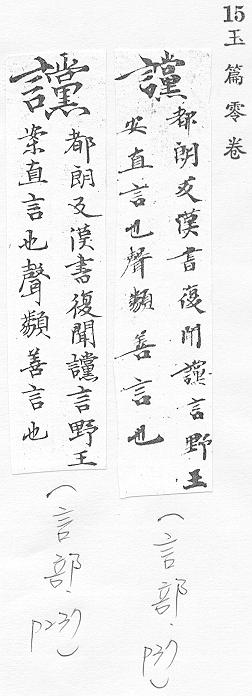 15 玉篇零卷
讜 都朗反漢書復聞讜言野王
案直言也聲類善言也
(言部.p31)
讜 都朗反漢書復聞讜言野王
案直言也聲類善言也
(言部.p231)